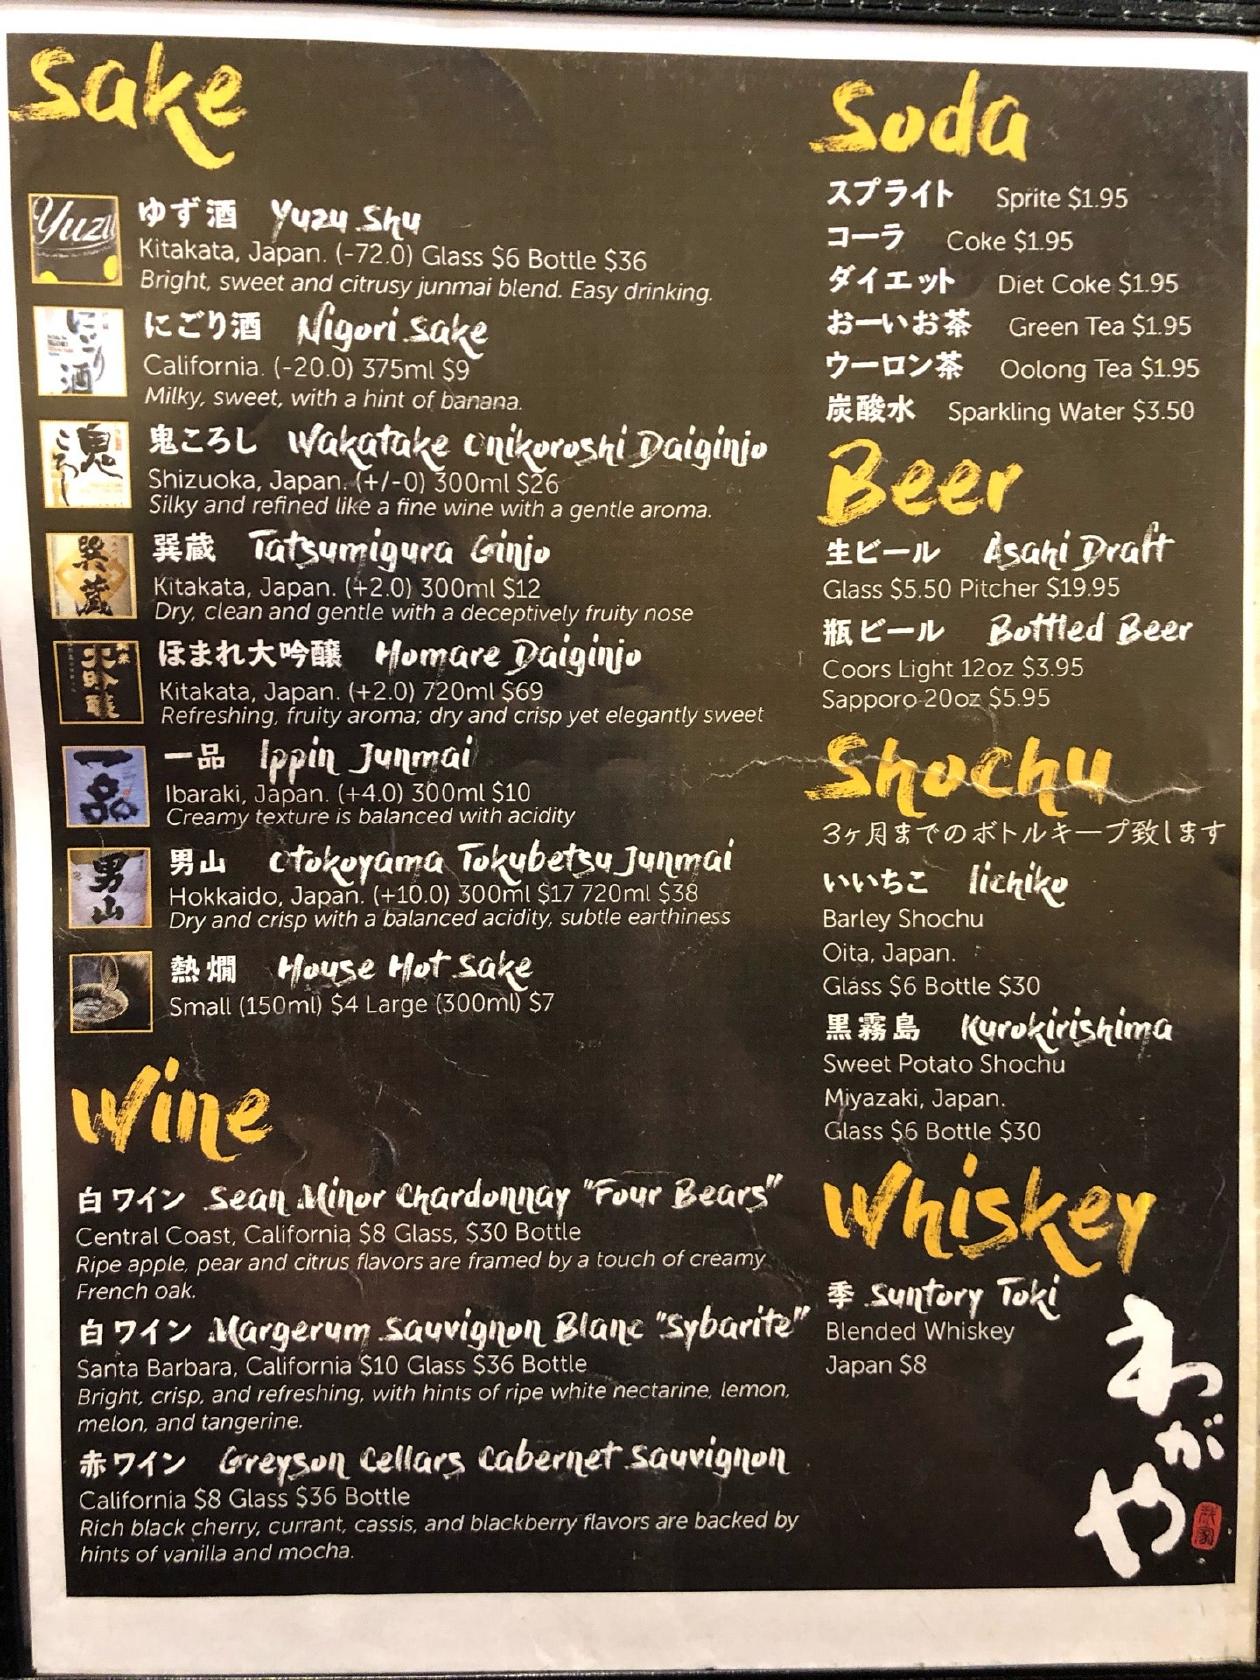 Sake
Yuzu
ゆず酒 Yuzu Shu
Kitakata, Japan. (-72.0) Glass $6 Bottle $36
Bright, sweet and citrusy junmai blend. Easy drinking.
にごり酒
にごり酒 Nigori Sake
California. (-20.0) 375ml $9
Milky, sweet, with a hint of banana.
鬼ころし
鬼ころし Wakatake Onikoroshi Daiginjo
Shizuoka, Japan. (+/-0) 300ml $26
Silky and refined like a fine wine with a gentle aroma.
巽蔵
巽蔵 Tatsumigura Ginjo
Kitakata, Japan. (+2.0) 300ml $12
Dry, clean and gentle with a deceptively fruity nose
大吟醸
ほまれ大吟醸 Homare Daiginjo
Kitakata, Japan. (+2.0) 720ml $69
Refreshing, fruity aroma; dry and crisp yet elegantly sweet
一品
一品 Ippin Junmai
Ibaraki, Japan. (+4.0) 300ml $10
Creamy texture is balanced with acidity
男山
男山 Otokoyama Tokubetsu Junmai
Hokkaido, Japan. (+10.0) 300ml $17 720ml $38
Dry and crisp with a balanced acidity, subtle earthiness
熱燗 House Hot Sake
Small (150ml) $4 Large (300ml) $7
Wine
白ワイン Sean Minor Chardonnay "Four Bears"
Central Coast, California $8 Glass, $30 Bottle
Ripe apple, pear and citrus flavors are framed by a touch of creamy
French oak.
白ワイン Margerum Sauvignon Blanc "Sybarite"
Santa Barbara, California $10 Glass $36 Bottle
Bright, crisp, and refreshing, with hints of ripe white nectarine, lemon,
melon, and tangerine.
赤ワイン Greyson Cellars Cabernet Sauvignon
California $8 Glass $36 Bottle
Rich black cherry, currant, cassis, and blackberry flavors are backed by
hints of vanilla and mocha.
Soda
スプライト Sprite $1.95
コーラ Coke $1.95
ダイエット Diet Coke $1.95
おーいお茶 Green Tea $1.95
ウーロン茶 Oolong Tea $1.95
炭酸水 Sparkling Water $3.50
Beer
生ビール Asahi Draft
Glass $5.50 Pitcher $19.95
瓶ビール Bottled Beer
Coors Light 12oz $3.95
Sapporo 20oz $5.95
Shochu
3ヶ月までのボトルキープ致します
いいちこ Iichiko
Barley Shochu
Oita, Japan.
Glass $6 Bottle $30
黒霧島 Kurokirishima
Sweet Potato Shochu
Miyazaki, Japan.
Glass $6 Bottle $30
Whiskey
季 Suntory Toki
Blended Whiskey
Japan $8
わがや